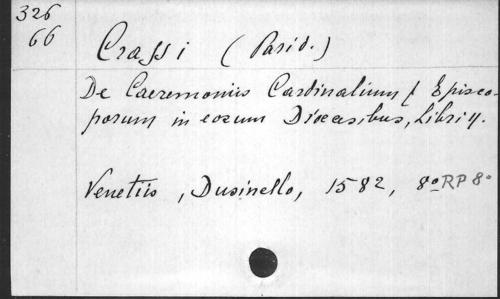 326
66
Crassi (Parid.)
De Caeremoniis Cardinalium & Episco-
porum in eorum Dioecesibus, Libri ij.
Venetiis, Dusinello, 1582, 8º RP 8º